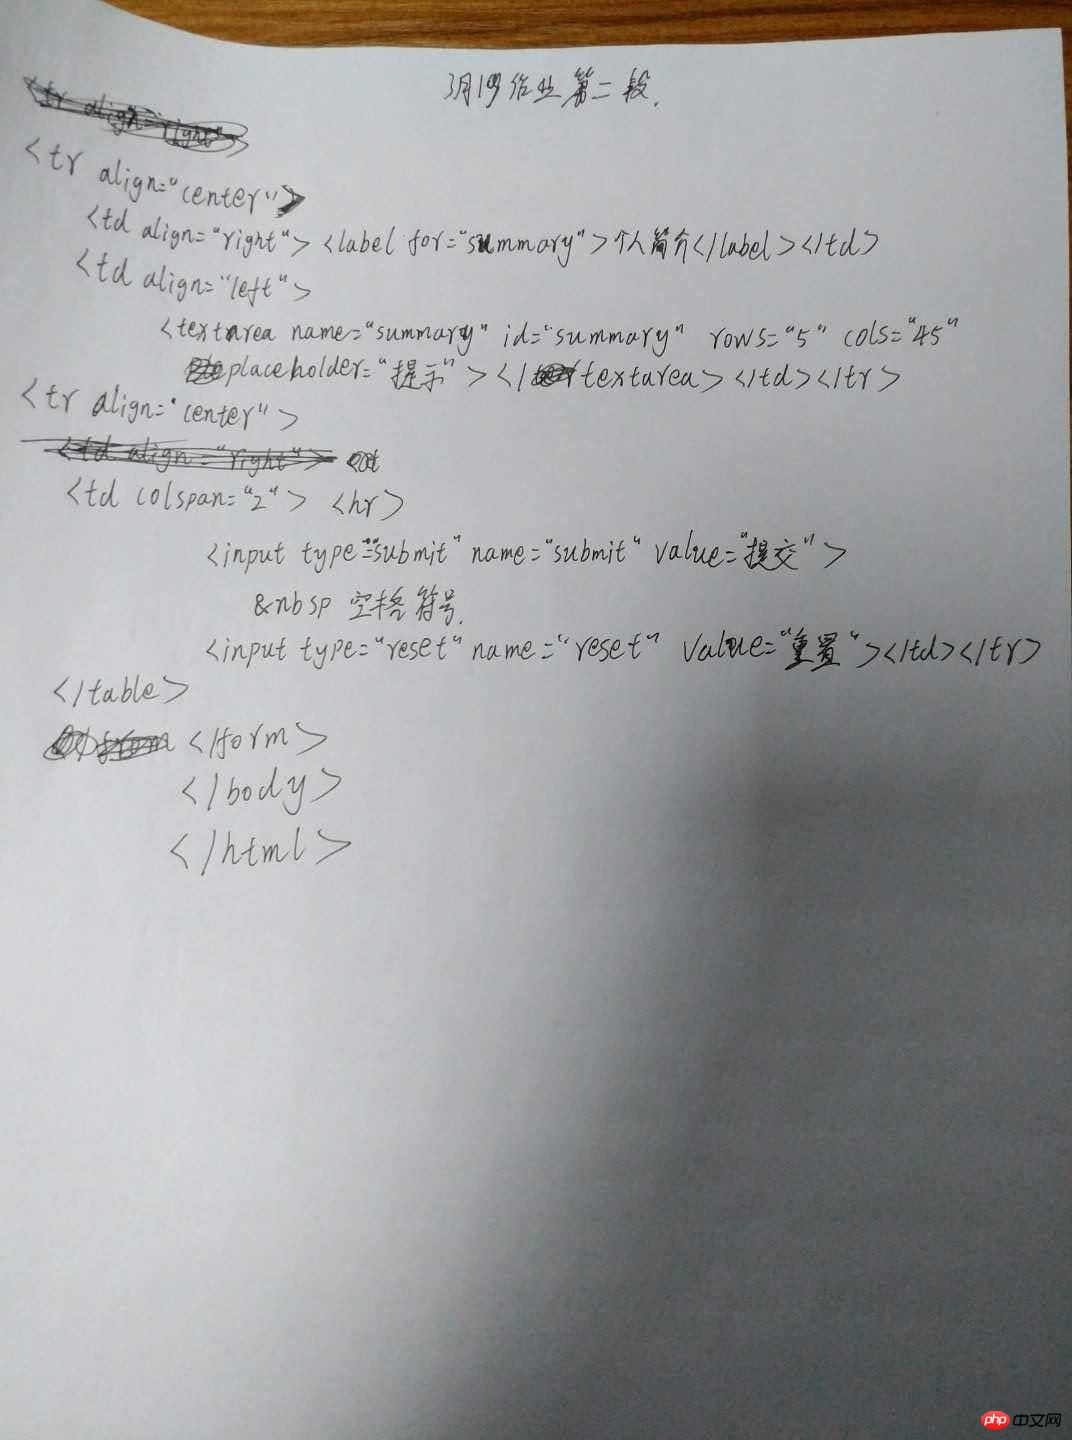 3月19作业第二段.
<tr align="right">
<tr align="center">
<td align="right"> <label for="summary">个人简介</label></td>
<td align="left">
<textarea name="summary" id="summary" rows="5" cols="45"
placeholder="提示"></textarea></td></tr>
<tr align="center">
<td align="right">
<td colspan="2"> <hr>
<input type="submit" name="submit" value="提交">
&nbsp 空格符号.
<input type="reset" name="reset" value="重置"></td></tr>
</table>
</form>
</body>
</html>
php中文网